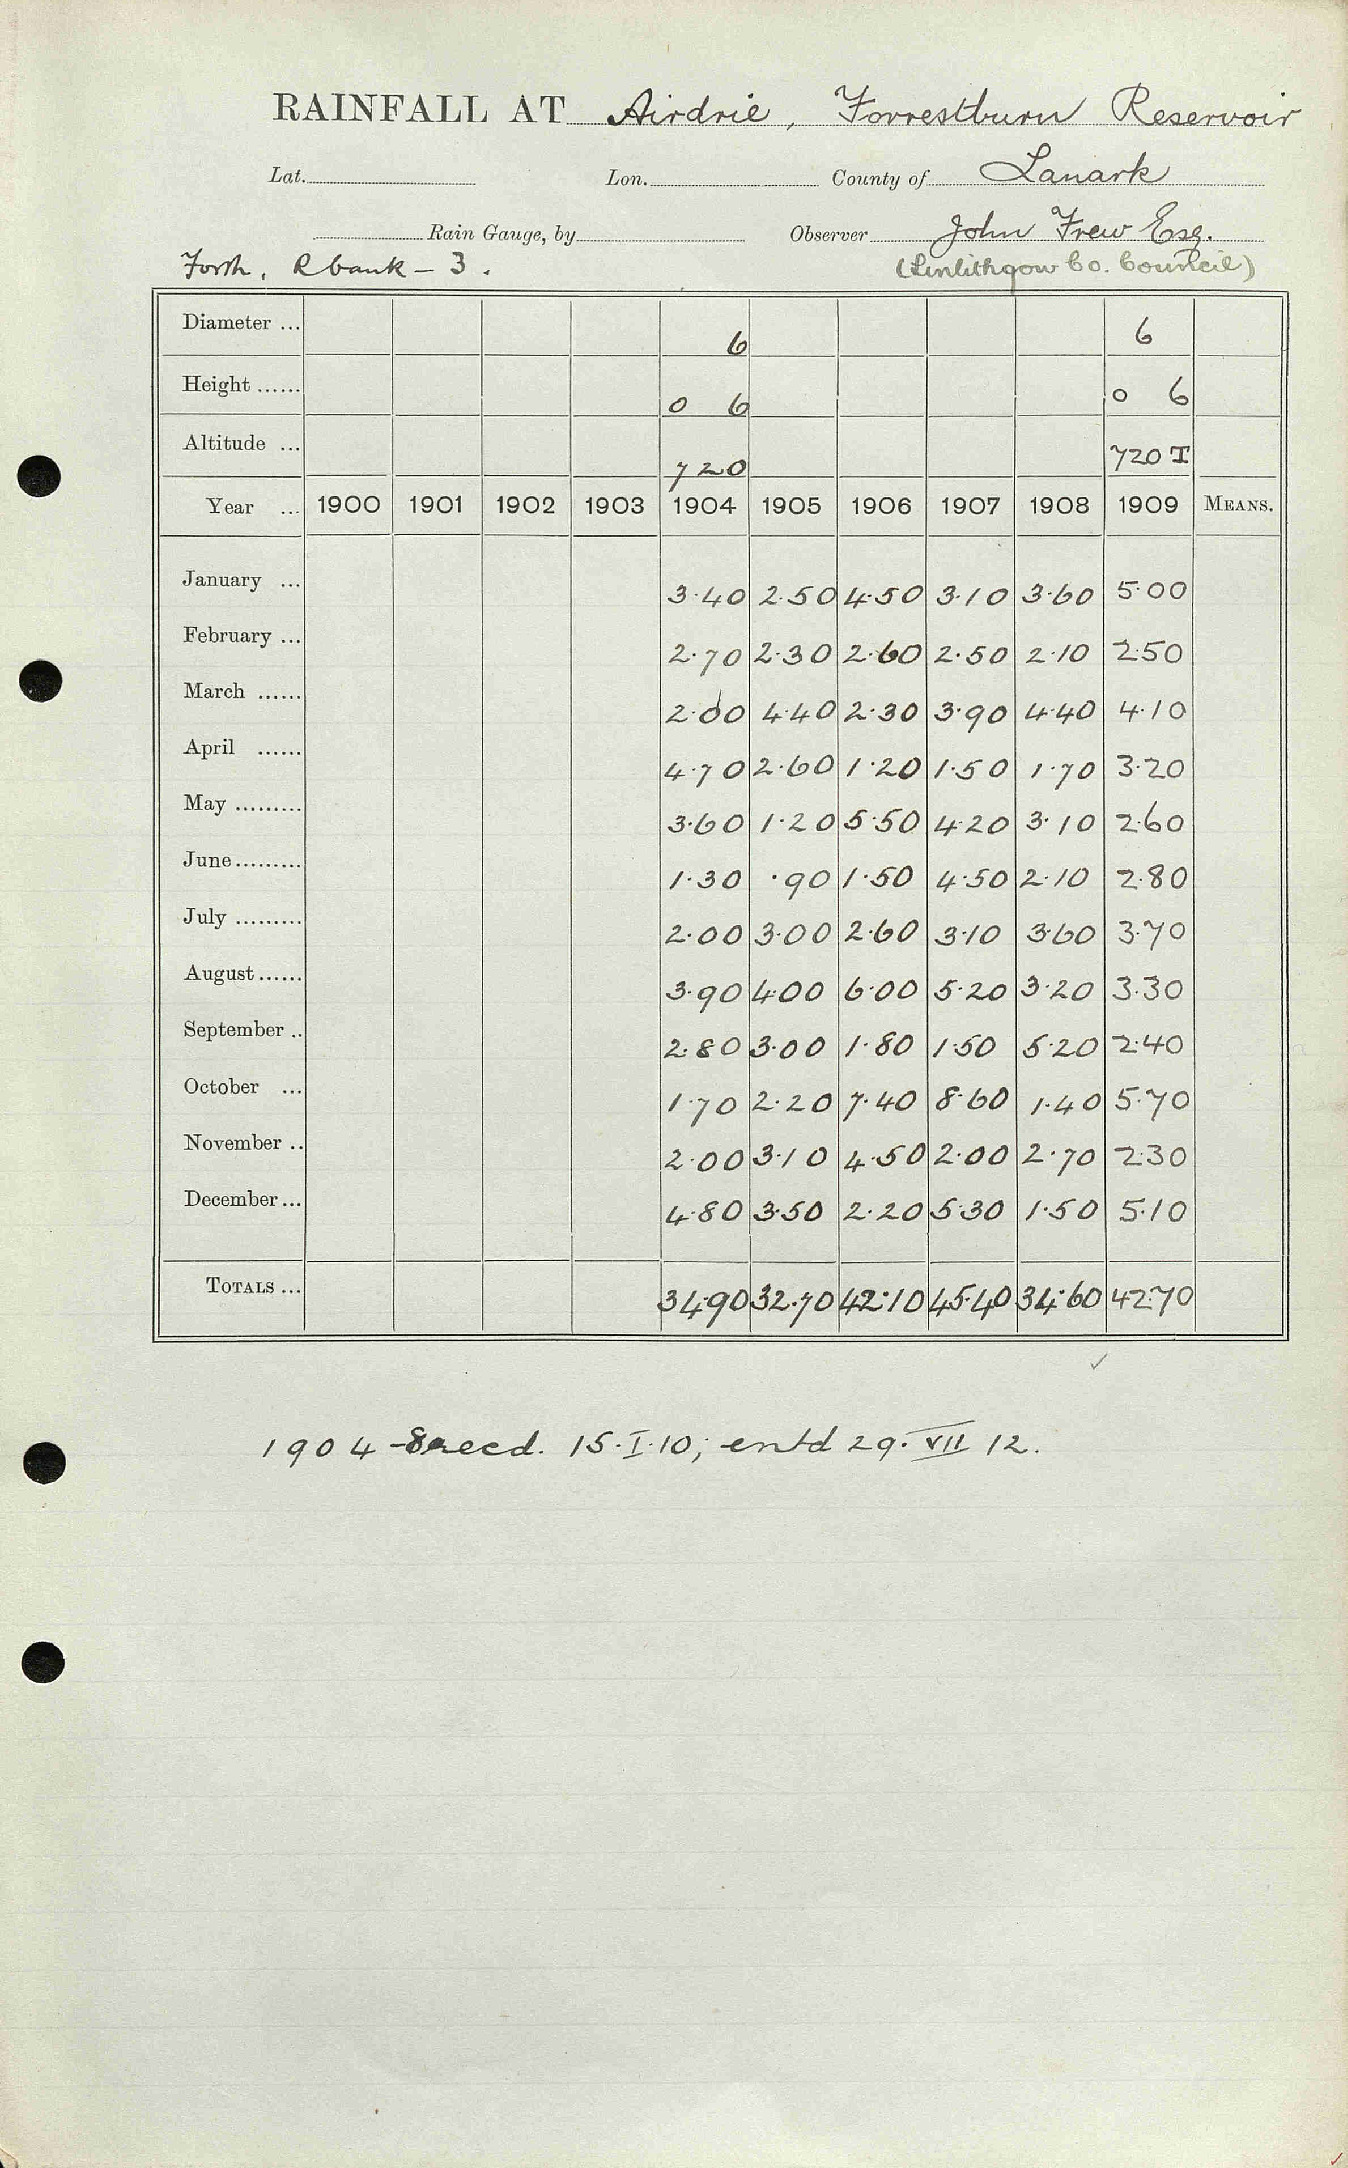 RAINFALL AT Airdrie, Forrestburn Reservoir
Lat. Lon. County of Lanark
Rain Gauge, by Observer John Frew Esq.
Forth, R bank - 3. (Linlithgow Co. Council)
Diameter ... 6 6
Height ...... 0 6 0 6
Altitude ... 720 720 T
Year ... 1900 1901 1902 1903 1904 1905 1906 1907 1908 1909 MEANS.
January ... 3.40 2.50 4.50 3.10 3.60 5.00
February ... 2.70 2.30 2.60 2.50 2.10 2.50
March ...... 2.00 4.40 2.30 3.90 4.40 4.10
April ...... 4.70 2.60 1.20 1.50 1.70 3.20
May ......... 3.60 1.20 5.50 4.20 3.10 2.60
June......... 1.30 .90 1.50 4.50 2.10 2.80
July ......... 2.00 3.00 2.60 3.10 3.60 3.70
August...... 3.90 4.00 6.00 5.20 3.20 3.30
September .. 2.80 3.00 1.80 1.50 5.20 2.40
October ... 1.70 2.20 7.40 8.60 1.40 5.70
November .. 2.00 3.10 4.50 2.00 2.70 2.30
December... 4.80 3.50 2.20 5.30 1.50 5.10
TOTALS ... 34.90 32.70 42.10 45.40 34.60 42.70
1904-8 recd. 15.I.10; entd 29.VII 12.